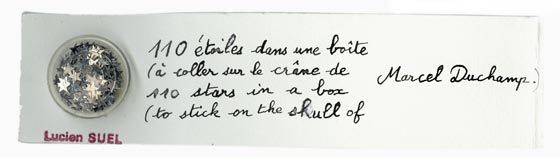 110 étoiles dans une boîte
(à coller sur le crâne de
110 stars in a box
(to stick on the skull of
Marcel Duchamp.)
Lucien SUEL